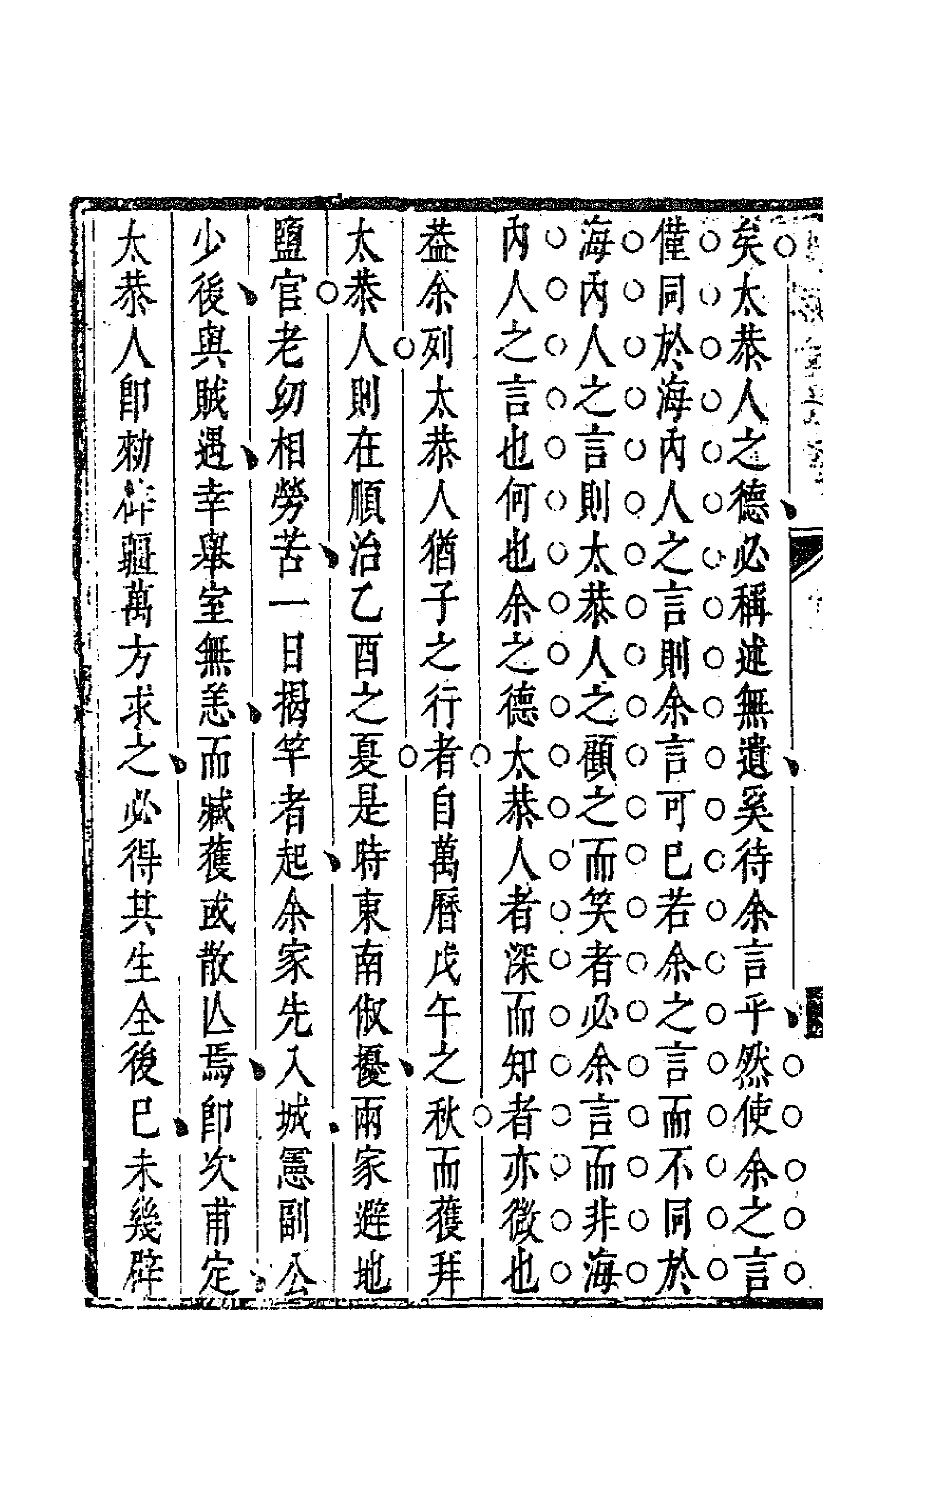 矣太恭人之德必稱述無遺奚待余言乎然使余之言
僅同於海內人之言則余言可已若余之言而不同於
海內人之言則太恭人之顧之而笑者必余言而非海
內人之言也何也余之德太恭人者深而知者亦微也
葢余列太恭人猶子之行者自萬曆戊午之秋而獲拜
太恭人則在順治乙酉之夏是時東南俶擾兩家避地
鹽官老幼相勞苦一日揭竿者起余家先入城憲副公
少後與賊遇幸舉室無恙而臧獲或散亾焉卽次甫定
太恭人卽勑疆萬方求之必得其生全後已未幾辟